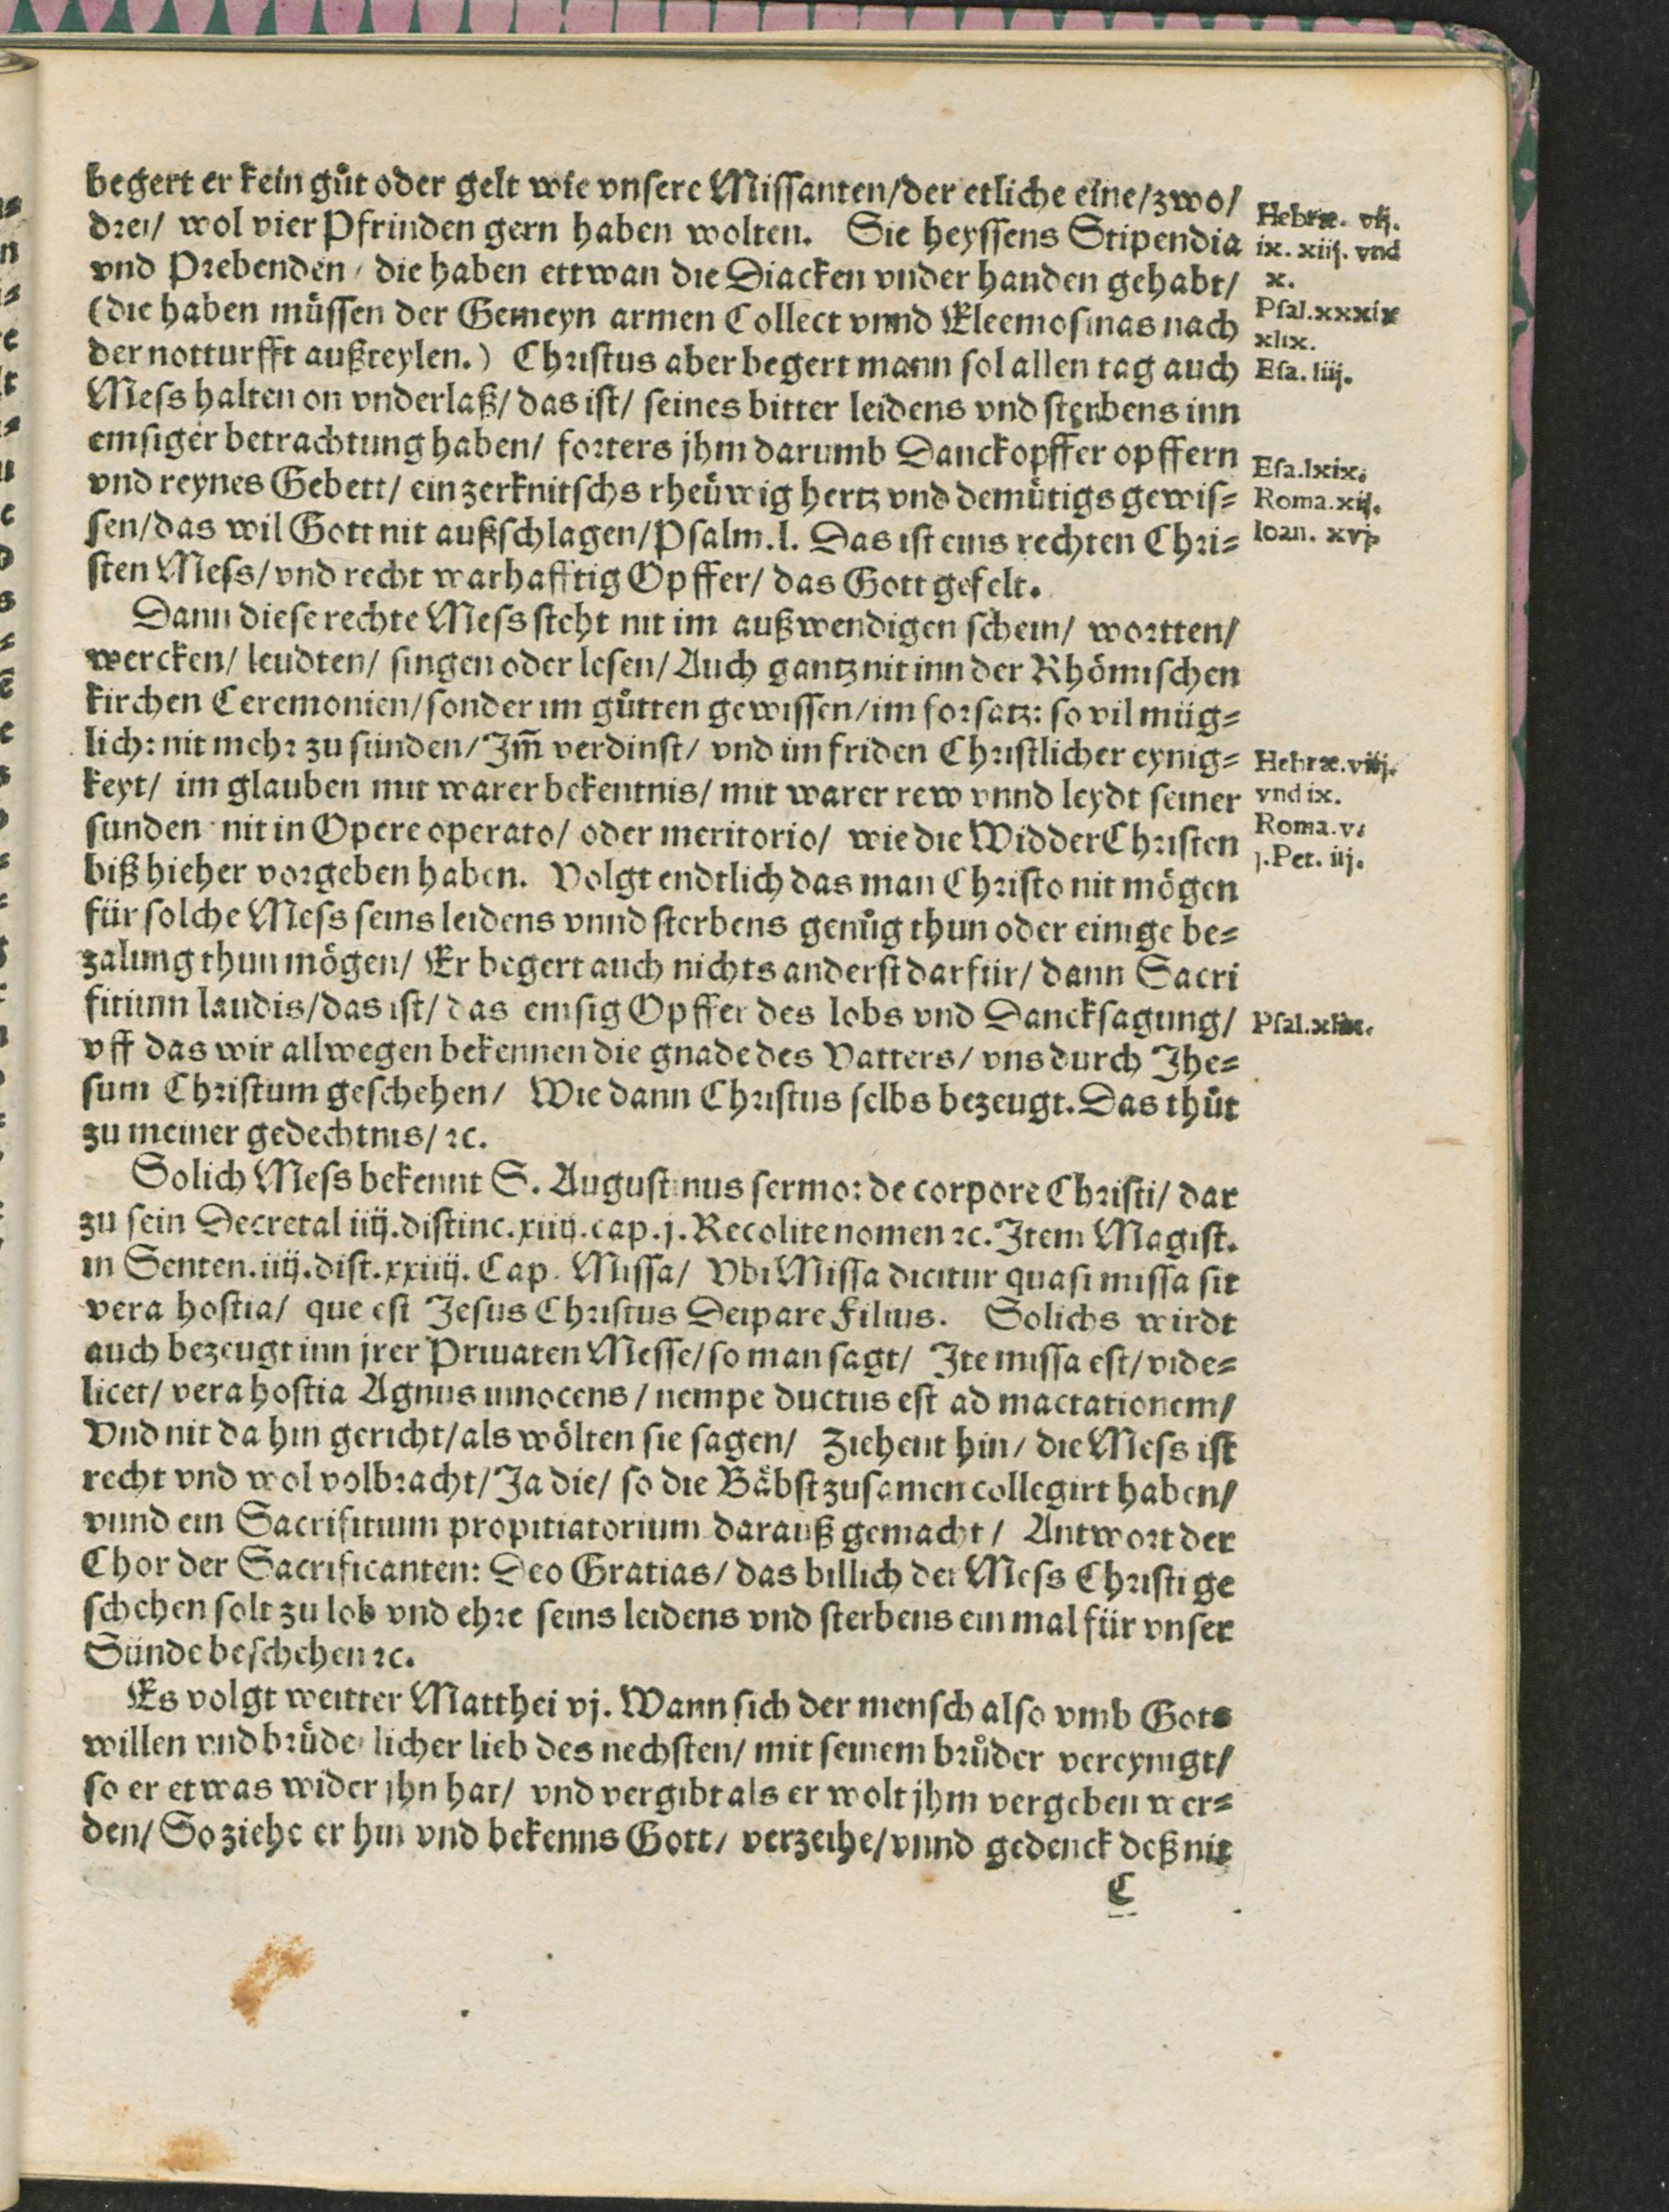 begert er kein gůt oder gelt wie vnsere Missanten/der etliche eine/zwo/
drei/ wol vier Pfrinden gern haben wolten. Sie heyssens Stipendia
vnd Prebenden/ die haben ettwan die Diacken vnder handen gehabt/
(die haben müssen der Gemeyn armen Collect vnnd Eleemosinas nach
der notturfft außteylen.) Christus aber begert mann sol allen tag auch
Mess halten on vnderlaß/ das ist/ seines bitter leidens vnd sterbens inn
emsiger betrachtung haben/ forters jhm darumb Danckopffer opffern
vnd reynes Gebett/ ein zerknitschs rheüwig hertz vnd demütigs gewis=
sen/das wil Gott nit außschlagen/Psalm.l. Das ist eins rechten Chri=
sten Mess/vnd recht warhafftig Opffer/ das Gott gefelt.
Hebræ. vij.
ix. xiij. vnd
x.
Psal.xxxix
xlix.
Esa. liij.
Esa.lxix.
Roma.xij.
Ioan. xvj.
Dann diese rechte Mess steht nit im außwendigen schein/ wortten/
wercken/ leudten/ singen oder lesen/ Auch gantz nit inn der Rhömischen
kirchen Ceremonien/sonder im gůtten gewissen/im forsatz: so vil müg=
lich: nit mehr zu sünden/Im̃ verdinst/ vnd im friden Christlicher eynig=
keyt/ im glauben mit warer bekentnis/ mit warer rew vnnd leydt seiner
sunden nit in Opere operato/ oder meritorio/ wie die WidderChristen
biß hieher vorgeben haben. Volgt endtlich das man Christo nit mögen
für solche Mess seins leidens vnnd sterbens genůg thun oder einige be=
zalung thun mögen/ Er begert auch nichts anderst darfür/ dann Sacri
fitium laudis/das ist/ das emsig Opffer des lobs vnd Dancksagung/
vff das wir allwegen bekennen die gnade des Vatters/ vns durch Jhe=
sum Christum geschehen/ Wie dann Christus selbs bezeugt. Das thůt
zu meiner gedechtnis/ ꝛc.
Hebræ.viij.
vnd ix.
Roma.v.
j.Pet. iij.
Psal.xlix.
Solich Mess bekennt S. Augustinus sermo: de corpore Christi/ dar
zu sein Decretal iiij.distinc.xiiij.cap.j.Recolite nomen ꝛc. Item Magist.
in Senten.iiij.dist.xxiiij. Cap. Missa/ Vbi Missa dicitur quasi missa sit
vera hostia/ que est Jesus Christus Deipare Filius. Solichs wirdt
auch bezeugt inn jrer Priuaten Messe/so man sagt/ Ite missa est/ vide=
licet/ vera hostia Agnus innocens/ nempe ductus est ad mactationem/
Vnd nit da hin gericht/als wölten sie sagen/ Ziehent hin/ die Mess ist
recht vnd wol volbracht/Ja die/ so die Bäbst zusamen collegirt haben/
vnnd ein Sacrifitium propitiatorium darauß gemacht/ Antwort der
Chor der Sacrificanten: Deo Gratias/ das billich der Mess Christi ge
schehen solt zu lob vnd ehre seins leidens vnd sterbens ein mal für vnser
Sünde beschehen ꝛc.
Es volgt weitter Matthei vj. Wann sich der mensch also vmb Gots
willen vnd brüderlicher lieb des nechsten/ mit seinem brůder vereynigt/
so er etwas wider jhn hat/ vnd vergibt als er wolt jhm vergeben wer=
den/ So ziehe er hin vnd bekenns Gott/ verzeihe/vnnd gedenck deß nit
C